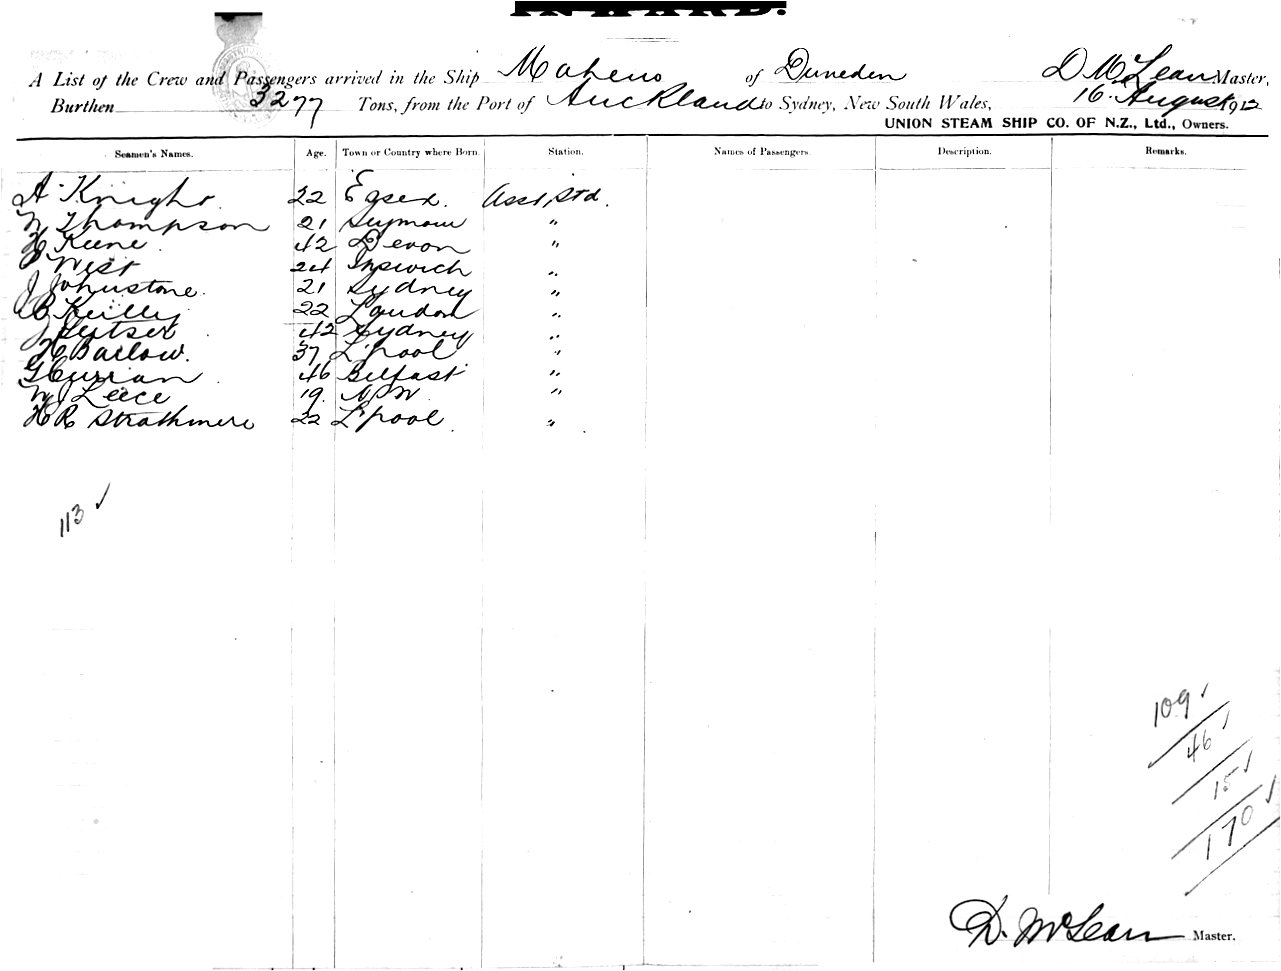 INWARD.
A List of the Crew and Passengers arrived in the Ship Maheno of Duneden D McLean Master,
Burthen 3277 Tons, from the Port of Auckland to Sydney, New South Wales, 16 August 1912
UNION STEAM SHIP CO. OF N.Z., Ltd., Owners.
Seamen's Names. Age. Town or Country where Born. Station. Names of Passengers. Description. Remarks.
A Knight 22 Essex. Asst Std.
W Thompson 21 Seymour "
H Keene 42 Devon "
P West 24 Ipswich "
J Johnstone 21 Sydney "
B Reilly 22 London "
J 42 Sydney "
H Barlow. 37 L'pool "
G Curran 46 Belfast "
W J Leece 19. NSW "
H R Strathmere 22 L'pool "
113 ✓
109 ✓
46 ✓
15 ✓
170 ✓
D. McLean Master.